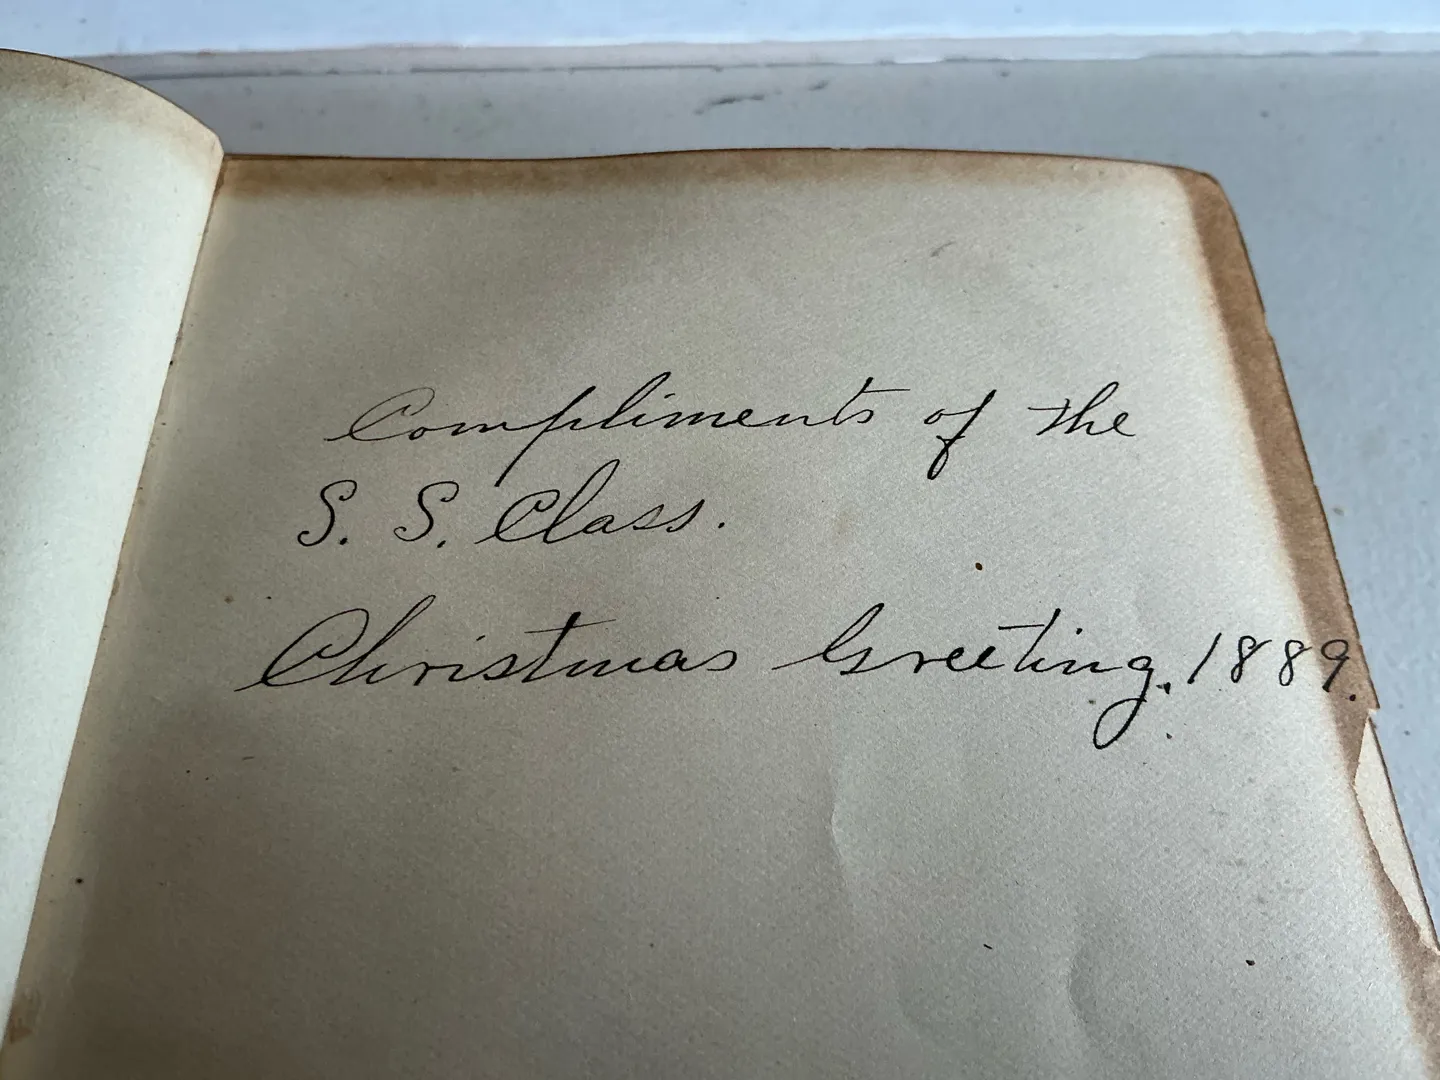 Compliments of the
S. S. Class.
Christmas Greeting. 1889.